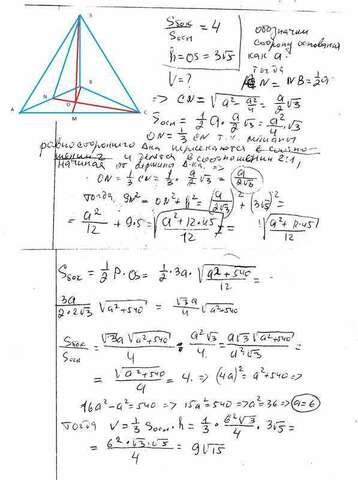 S
A
N
O
M
B
C
Sбок/Sосн = 4
h = OS = 3√5
V = ?
обозначим
сторону основания
как a.
тогда
AN = NB = ½a
=> CN = √(a² - a²/4) = a/2 √3
Sосн = ½ a · a/2 √3 = a²/4 √3
ON = ⅓ CN т.к. медианы
равностороннего Δка пересекаются в
и делятся в соотношении 2:1,
начиная от вершины Δ-ка. =>
ON = ⅓ CN = ⅓ · a/2 √3 = a/(2√3)
тогда SN² = ON² + h² = (a/(2√3))² + (3√5)² =
= a²/12 + 9·5 = √((a² + 12·45)/12) = √((a² + 12·45)/12)
Sбок = ½ P · OS = ½ · 3a · √((a² + 540)/12) =
3a/(2·2√3) √(a² + 540) = √3a/4 √(a² + 540)
Sбок/Sосн = √3a √(a² + 540)/4 : a²√3/4 = a√3 √(a² + 540)/(a²√3) =
= √(a² + 540)/a = 4. => (4a)² = a² + 540 =>
16a² - a² = 540 => 15a² = 540 => a² = 36 => a = 6
тогда V = ⅓ Sосн · h = ⅓ · 6²√3/4 · 3√5 =
= 6² · √3 · √5/4 = 9√15